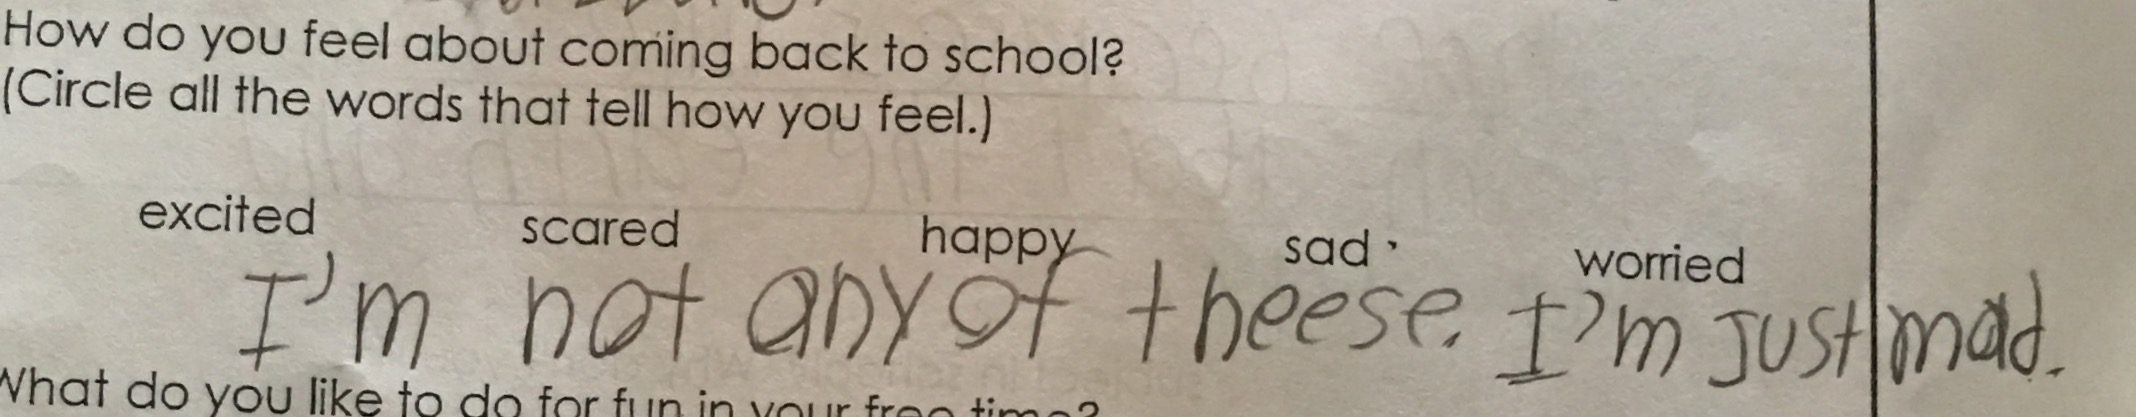 How do you feel about coming back to school?
(Circle all the words that tell how you feel.)
excited scared happy sad worried
I'm not any of theese. I'm just mad.
What do you like to do for fun in your free time?